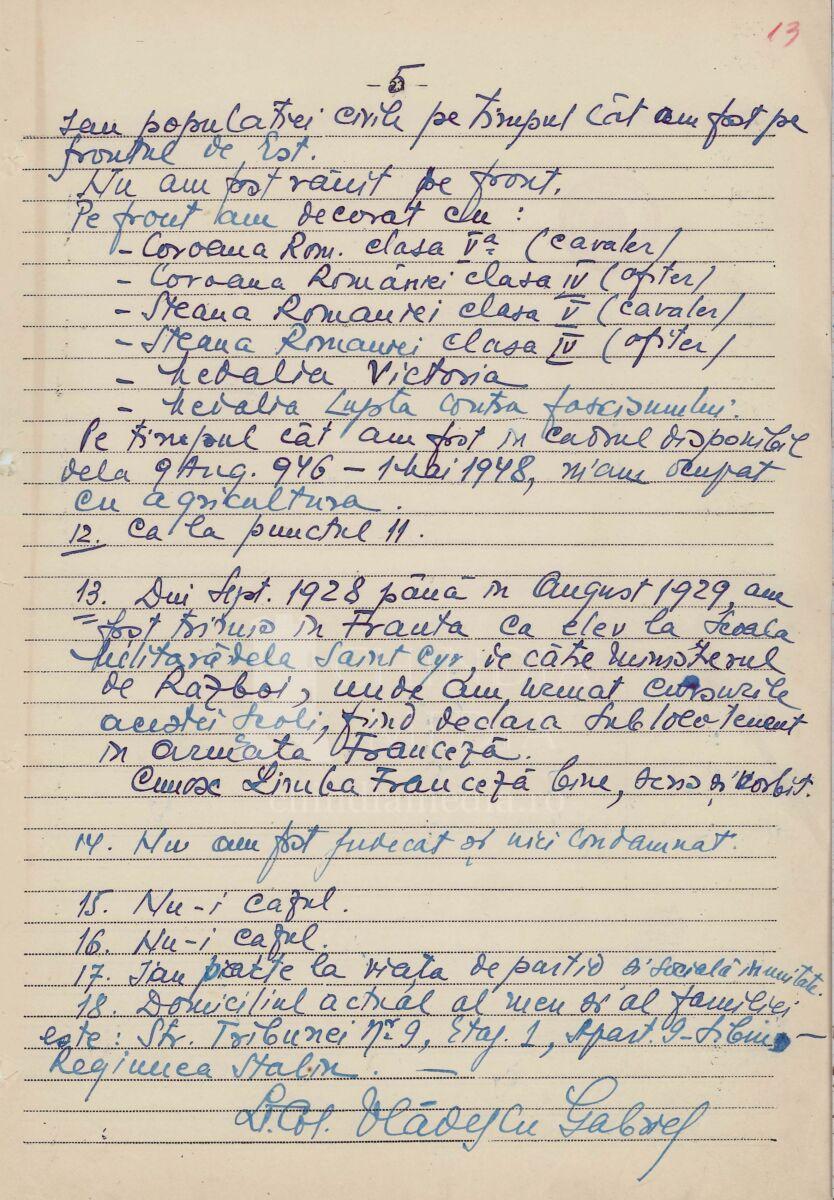 13
- 5 -
sau populatiei civile pe timpul cât am fost pe
frontul de Est.
Nu am fost rănit pe front.
Pe front am decorat cu :
- Coroana Rom. clasa Va (cavaler)
- Coroana României clasa IV (ofiter)
- Steaua Romaniei clasa V (cavaler)
- Steaua Romaniei clasa IV (ofiter)
- Medalia Victoria
- Medalia Lupta Contra fascismului.
Pe timpul cât am fost in cadrul disponibil
dela 9 Aug. 946 - 1 Mai 1948, m'am ocupat
cu agricultura.
12. Ca la punctul 11.
13. Din Sept. 1928 până in August 1929, am
fost trimis in Franta ca elev la Scoala
Militară dela Saint Cyr, de către Ministerul
de Războiu, unde am urmat cursurile
acestei scoli, fiind declarat Sublocotenent
in armata Franceză.
Cunosc Limba Franceză bine, scris si vorbit.
14. Nu am fost judecat si nici condamnat.
15. Nu-i cazul.
16. Nu-i cazul.
17. Iau parte la viata de partid si socială in unitate.
18. Domiciliul actual al meu si al familiei
este : Str. Tribunei Nr. 9, Etaj. 1, Apart. 9 - Sibiu, -
Regiunea Stalin. -
Lt. Col. Vlădescu Gabriel